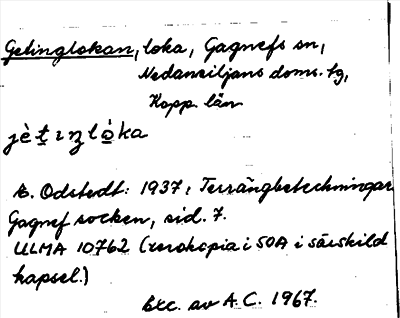 Getinglokan, loka, Gagnefs sn,
Nedansiljans doms. tg,
Kopp. län
jètıŋlòka
B. Odstedt: 1937, Terrängbeteckningar
Gagnef socken, sid. 7.
ULMA 10762 (xerokopia i 50A i särskild
kapsel.)
Exc. av A.C. 1967.